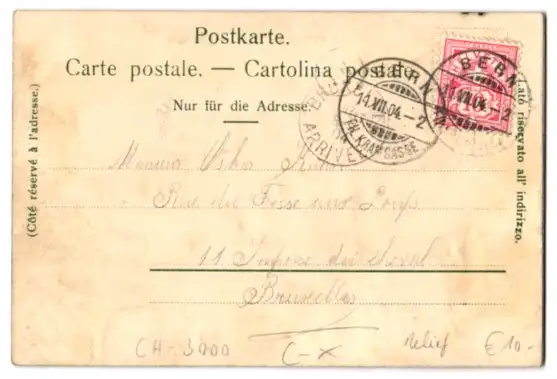 Postkarte.
Carte postale. — Cartolina postale.
Nur für die Adresse.
(Côté réservé à l'adresse.)
Lato riservato all' indirizzo.
BERN
11.VII.04.-2
BERN
11.VII.04.-2
ARRIVÉE
Monsieur
Rue du Fossé aux Loups
11 Impasse du
Bruxelles
CH-3000
C-X
Relief
€10-